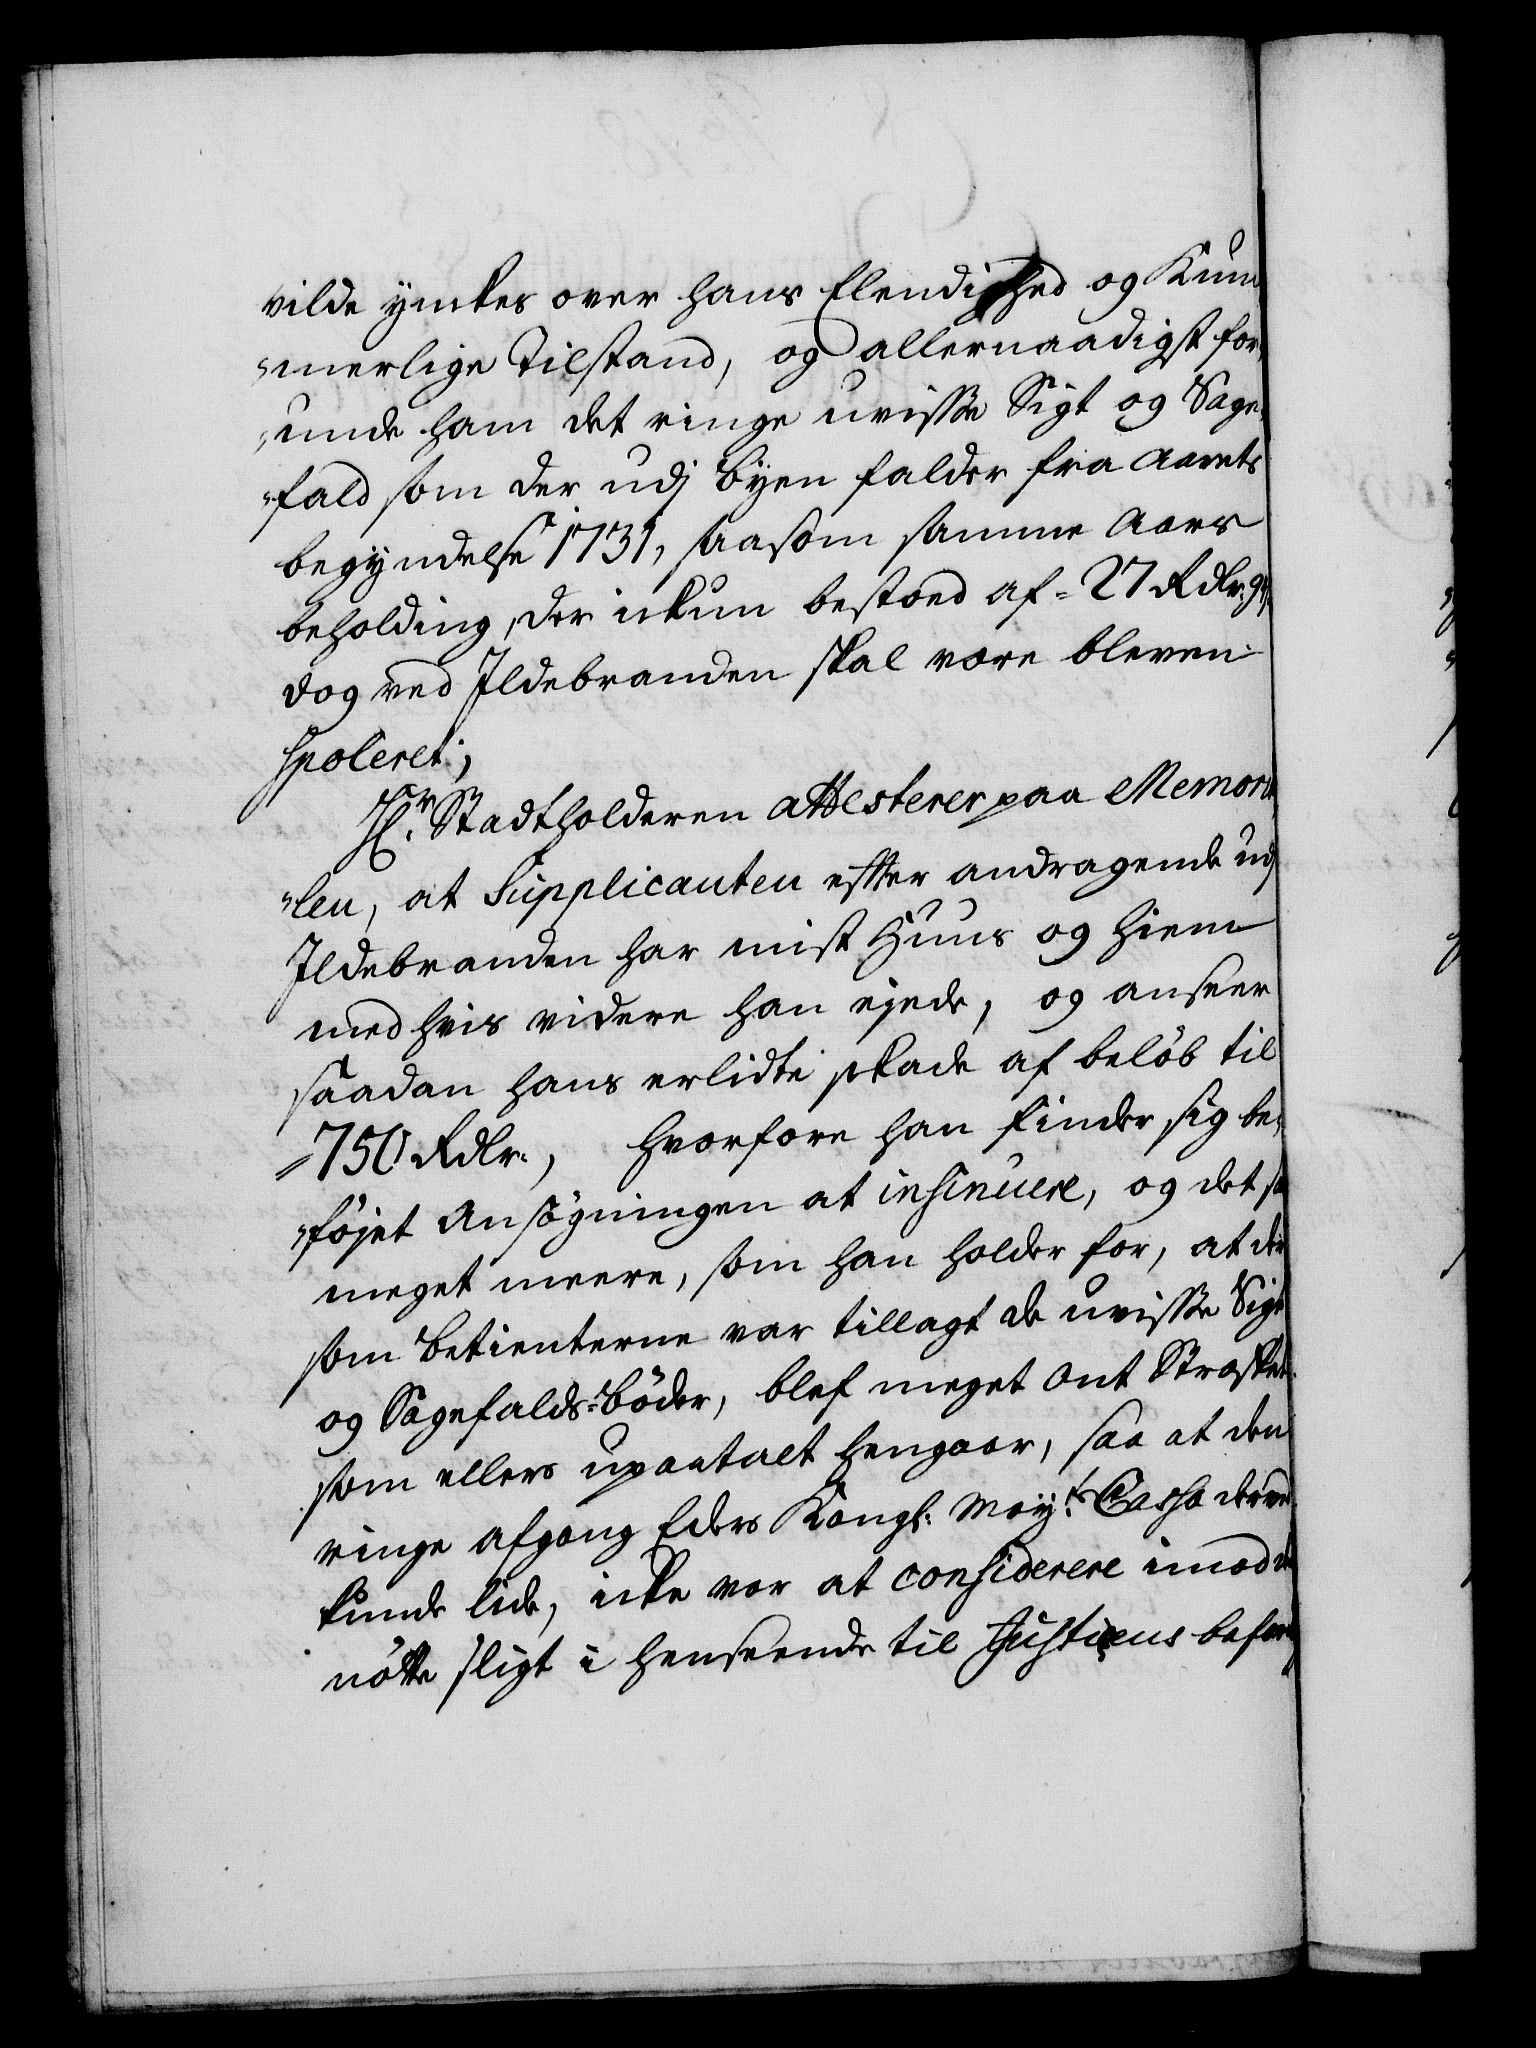 vilde ynkes over hans Elendighed og Kum
"merlige Tilstand, og allernaadigst for,
"unde ham det ringe uvisse Sigt og Sage,
"fald som der udj Byen falder fra Aarets
begyndelse 1731, saasom samme Aars
beholding, der ickun bestoed af = 27 Rdlr:
dog ved Ildebranden skal være bleven
spoleret;
Hr. Stadtholderen attesterer paa Memoria
"len, at Supplicanten efter andragende udj
Ildebranden har mist Huus og Hiem
med hvis videre han ejede, og anseer
saadan hans erlidte skade af beløb til
750 Rdlr., hvorfore han finder sig be,
"føjet Ansøgningen at insinuere, og det saa
meget meere, som han holder for, at der
som Betienterne var tillagt de uvisse Sigt
og Sagefalds-Bøder, blef meget ont Straffet
som ellers upaatalt hengaar, saa at den
ringe afgang Eders Kongl: May:ts Cassa derved
kunde lide, icke var at considerere imod den
nøtte sligt i henseende til Justicens befor